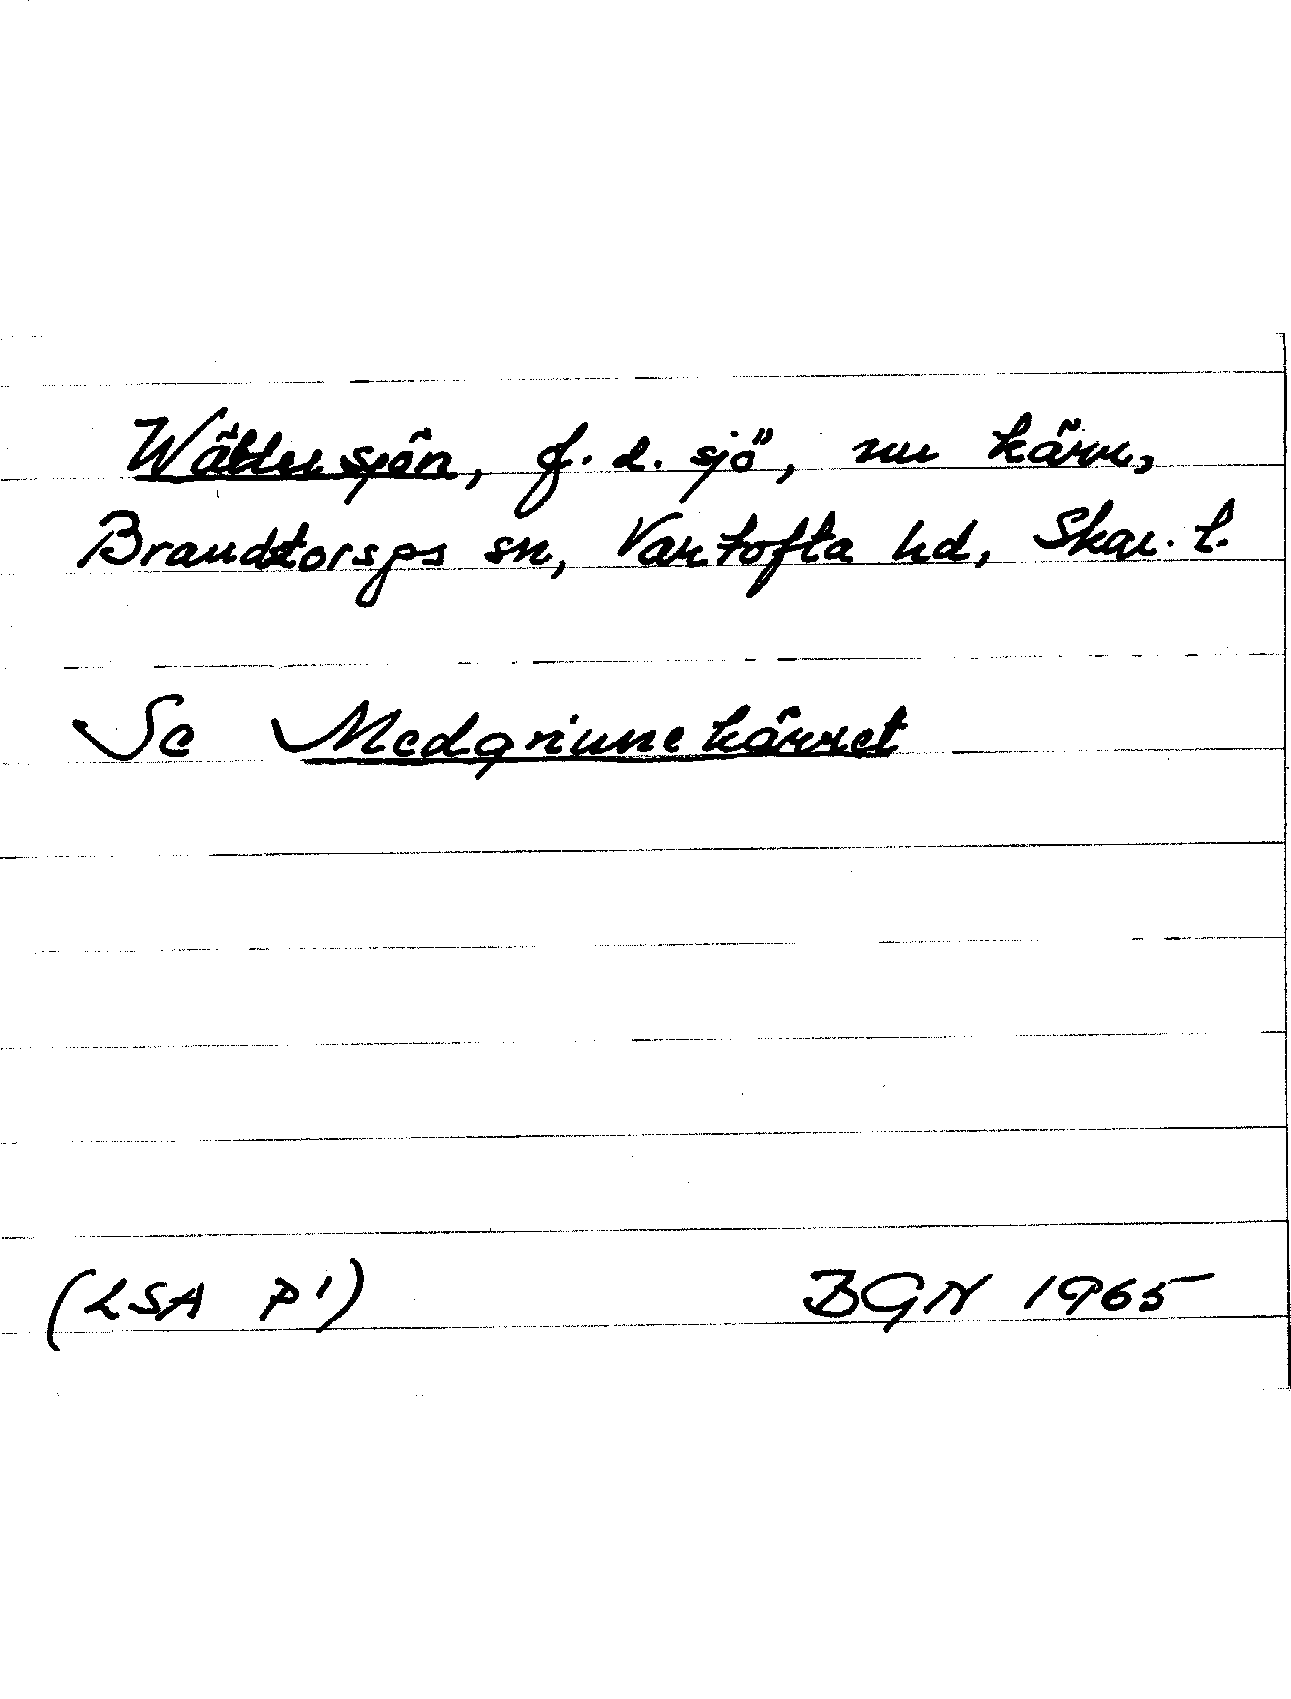 Wättersjön, f. d. sjö, nu kärr,
Brandstorps sn, Vartofta hd, Skar. l.
Se Medgrinnekärret
(LSA P1)
BGN 1965